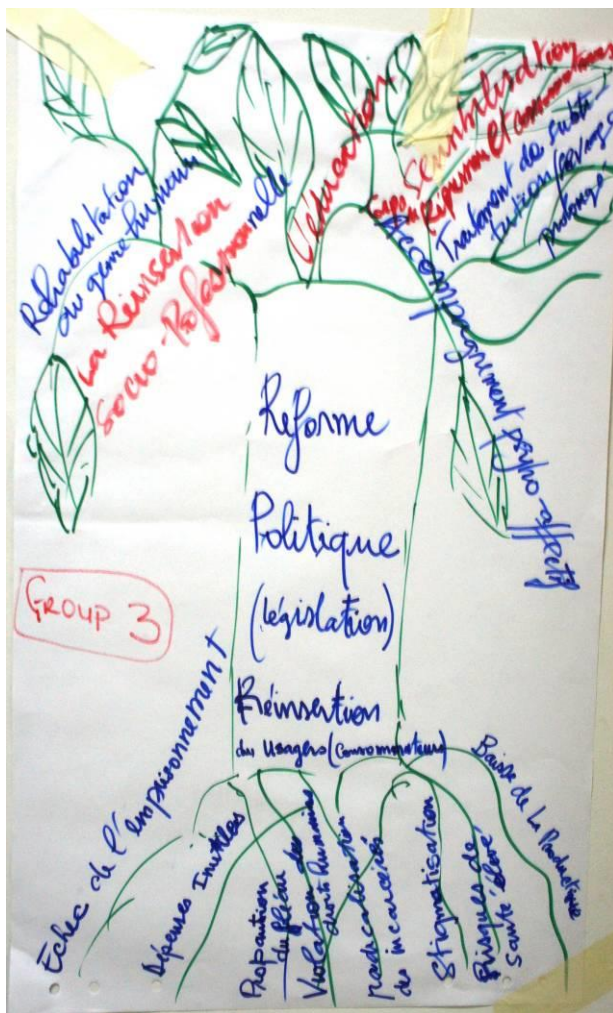 Réhabilitation
du genre humain
La Réinsertion
Socio-Professionnelle
L'éducation
Sensibilisation
Traitement de substi-
tution
Accompagnement psycho-affectif
Réforme
Politique
(législation)
Réinsertion
des Usagers (Consommateurs)
GROUP 3
Echec de l'emprisonnement
Dépenses Inutiles
du fléau
Violation des
droits humains
radicalisation
des incarcérés
Stigmatisation
Risques de
Santé élevé
Baisse de La